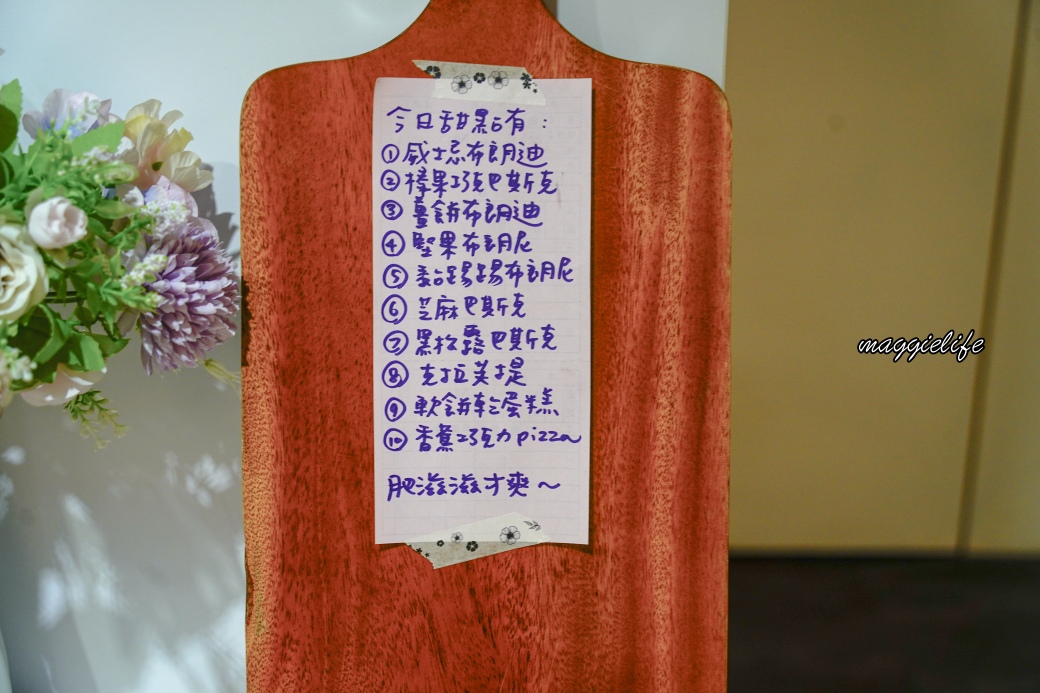 今日甜點有：
①威士忌布朗迪
②榛果巧克巴斯克
③薑餅布朗迪
④堅果布朗尼
⑤黏踢踢布朗尼
⑥芝麻巴斯克
⑦黑松露巴斯克
⑧克拉芙提
⑨軟餅乾蛋糕
⑩香蕉巧克力pizza
肥滋滋才爽～
maggielife